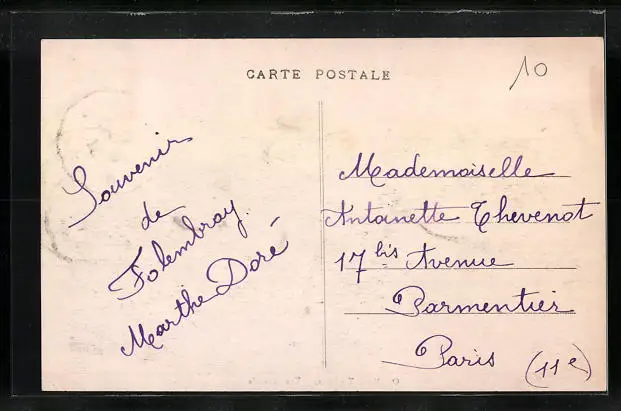 CARTE POSTALE
10
Souvenir
de
Folembray.
Marthe Doré
Mademoiselle
Antoinette Thevenot
17 bis Avenue
Parmentier
Paris (11e)